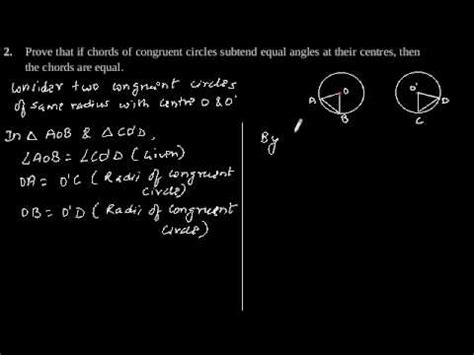 2. Prove that if chords of congruent circles subtend equal angles at their centres, then
the chords are equal.
Consider two congruent circles
of same radius with centre O & O'
In △ AOB & △ CO'D,
∠AOB = ∠CO'D (Given)
OA = O'C (Radii of congruent
circle)
OB = O'D (Radii of congruent
circle)
O
A
B
O'
C
D
By